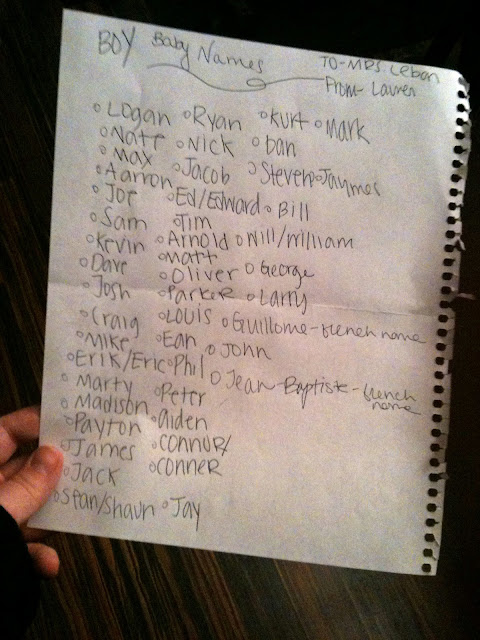 BOY Baby Names
TO-MRS. Lebon
From- Lauren
Logan Ryan Kurt Mark
Nate Nick Dan
Max Jacob Steven Jaymes
Aarron Ed/Edward Bill
Joe Tim
Sam Arnold Will/William
Kevin Matt
Dave Oliver George
Josh Parker Larry
Craig Louis Guillome-french name
Mike Ean John
Erik/Eric Phil Jean-Baptiste-french name
Marty Peter
Madison aiden
Payton connor/
James conner
Jack
Sean/Shaun Jay